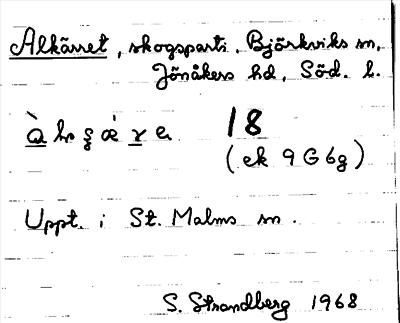 Alkärret, skogsparti, Björkviks sn,
Jönåkers hd, Söd. l.
18
(ek 9G6g)
Uppt. i St. Malms sn.
S. Strandberg 1968